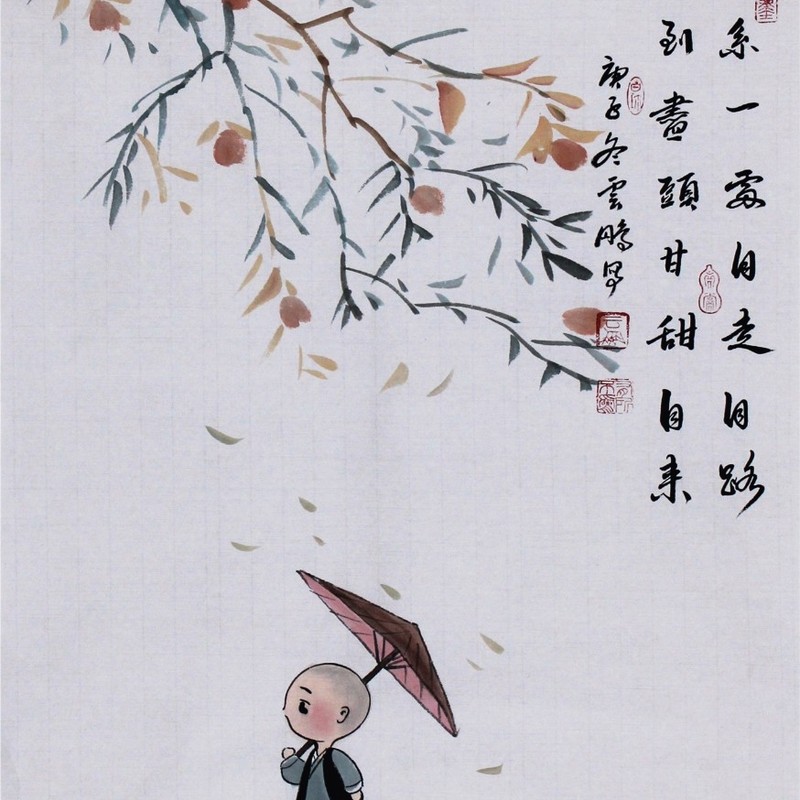 系一處自走自路
到盡頭甘甜自来
庚子冬雲鵬写